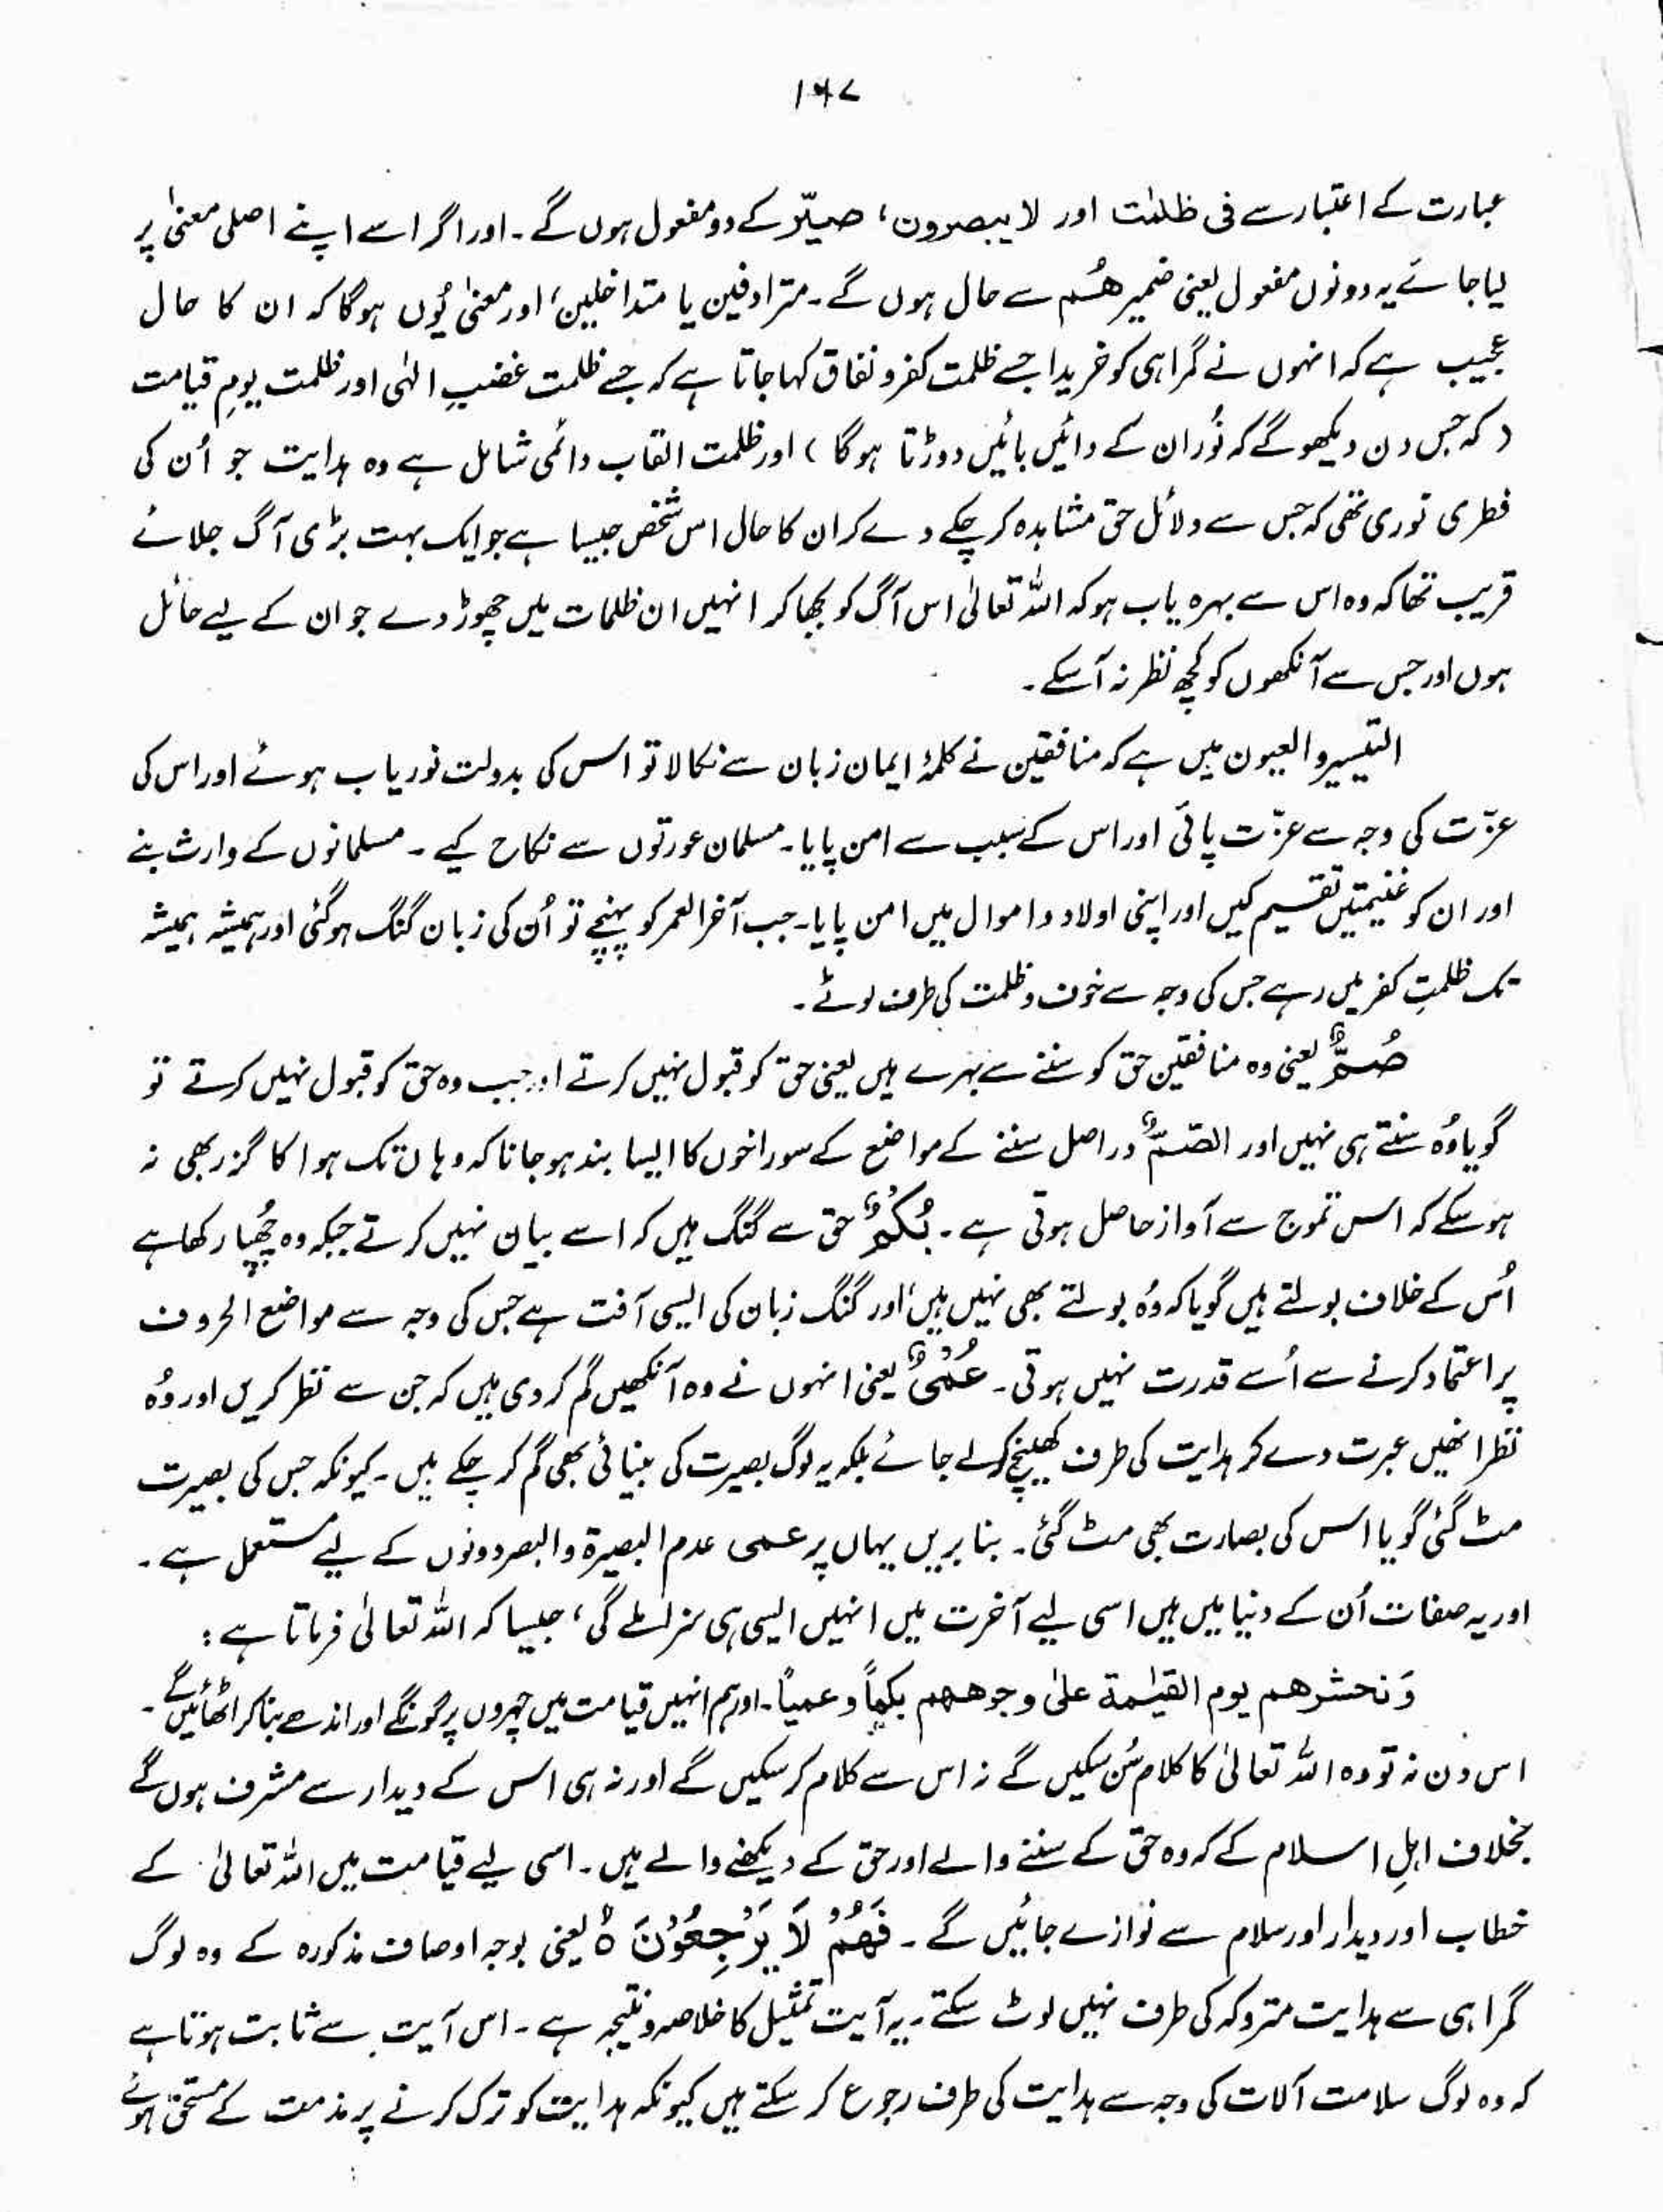 ۱۶۷
عبارت کے اعتبار سے فی ظلمٰت اور لا یبصرون، صیّر کے دو مفعول ہوں گے۔ اور اگر اسے اپنے اصلی معنیٰ پر
لیا جائے یہ دونوں مفعول یعنی ضمیر ھُم سے حال ہوں گے۔ مترادفین یا متداخلین، اور معنیٰ یُوں ہوگا کہ ان کا حال
عجیب ہے کہ انہوں نے گمراہی کو خریدا جسے ظلمت کفر و نفاق کہا جاتا ہے کہ جسے ظلمت غضبِ الٰہی اور ظلمت یومِ قیامت
(کہ جس دن دیکھو گے کہ نُور ان کے دائیں بائیں دوڑتا ہوگا) اور ظلمت القاب دائمی شامل ہے وہ ہدایت جو اُن کی
فطری نوری تھی کہ جس سے دلائل حق مشاہدہ کر چکے دے کر ان کا حال اس شخص جیسا ہے جو ایک بہت بڑی آگ جلائے
قریب تھا کہ وہ اس سے بہرہ یاب ہو کہ اللہ تعالیٰ اس آگ کو بجھا کر انہیں ان ظلمات میں چھوڑ دے جو ان کے لیے حائل
ہوں اور جس سے آنکھوں کو کچھ نظر نہ آسکے۔
التیسیر والعیون میں ہے کہ منافقین نے کلمۂ ایمان زبان سے نکالا تو اس کی بدولت نور یاب ہوئے اور اس کی
عزّت کی وجہ سے عزّت پائی اور اس کے سبب سے امن پایا۔ مسلمان عورتوں سے نکاح کیے۔ مسلمانوں کے وارث بنے
اور ان کو غنیمتیں تقسیم کیں اور اپنی اولاد و اموال میں امن پایا۔ جب آخر العمر کو پہنچے تو اُن کی زبان گنگ ہوگئی اور ہمیشہ ہمیشہ
تک ظلمتِ کفر میں رہے جس کی وجہ سے خوف و ظلمت کی طرف لوٹے۔
صُمٌّ یعنی وہ منافقین حق کو سننے سے بہرے ہیں یعنی حق کو قبول نہیں کرتے اور جب وہ حق کو قبول نہیں کرتے تو
گویا وُہ سنتے ہی نہیں اور الصّمّ دراصل سننے کے مواضع کے سوراخوں کا ایسا بند ہو جانا کہ وہاں تک ہوا کا گزر بھی نہ
ہو سکے کہ اس تموج سے آواز حاصل ہوتی ہے۔ بُکْمٌ حق سے گنگ ہیں کہ اسے بیان نہیں کرتے جبکہ وہ چُھپا رکھا ہے
اُس کے خلاف بولتے ہیں گویا کہ وُہ بولتے بھی نہیں ہیں، اور گنگ زبان کی ایسی آفت ہے جس کی وجہ سے مواضع الحروف
پر اعتماد کرنے سے اُسے قدرت نہیں ہوتی۔ عُمْیٌ یعنی انہوں نے وہ آنکھیں گم کر دی ہیں کہ جن سے نظر کریں اور وُہ
نظر انھیں عبرت دے کر ہدایت کی طرف کھینچ کر لے جائے بلکہ یہ لوگ بصیرت کی بینائی بھی گم کر چکے ہیں۔ کیونکہ جس کی بصیرت
مٹ گئی گویا اس کی بصارت بھی مٹ گئی۔ بنا بریں یہاں پر عمی عدم البصیرۃ والبصر دونوں کے لیے مستعمل ہے۔
اور یہ صفات اُن کے دنیا میں ہیں اسی لیے آخرت میں انہیں ایسی ہی سزا ملے گی، جیسا کہ اللہ تعالیٰ فرماتا ہے:
وَنحشرھم یوم القیٰمۃ علیٰ وجوھھم بکماً و عمیاً۔ اور ہم انہیں قیامت میں چہروں پر گونگے اور اندھے بنا کر اٹھائیں گے۔
اس دن نہ تو وہ اللہ تعالیٰ کا کلام سُن سکیں گے نہ اس سے کلام کر سکیں گے اور نہ ہی اس کے دیدار سے مشرف ہوں گے
بخلاف اہلِ اسلام کے کہ وہ حق کے سننے والے اور حق کے دیکھنے والے ہیں۔ اسی لیے قیامت میں اللہ تعالیٰ کے
خطاب اور دیدار اور سلام سے نوازے جائیں گے۔ فَھُمْ لَا یَرْجِعُوْنَ ہ یعنی بوجہ اوصاف مذکورہ کے وہ لوگ
گمراہی سے ہدایت متروکہ کی طرف نہیں لوٹ سکتے۔ یہ آیت تمثیل کا خلاصہ و نتیجہ ہے۔ اس آیت سے ثابت ہوتا ہے
کہ وہ لوگ سلامت آلات کی وجہ سے ہدایت کی طرف رجوع کر سکتے ہیں کیونکہ ہدایت کو ترک کرنے پر مذمت کے مستحق ہوئے